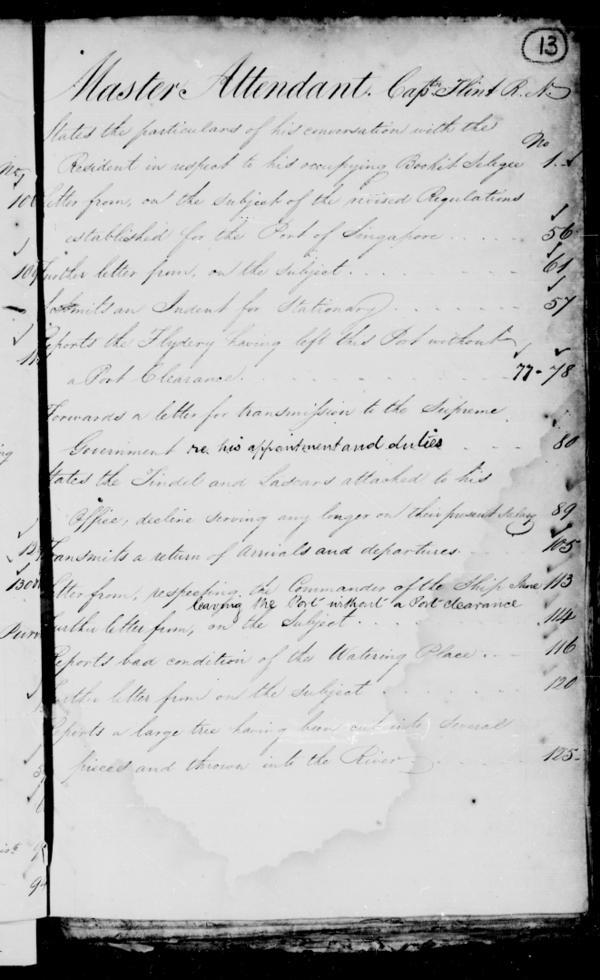 13
Master Attendant. Captn Flint R. N.
States the particulars of his conversation with the
No
Resident in respect to his occupying Bookit Seligee 1.
Letter from, on the subject of the revised Regulations
established for the Port of Singapore . . . . . 56
Further letter from, on the subject . . . . 61
Transmits an Indent for Stationary . . . . . 57
Reports the Flydery having left this Port without
a Port Clearance. . . . . . 77-78
Forwards a letter for transmission to the Supreme
Government re. his appointment and duties . . . 80
States the Tindel and Lascars attached to his
Office, decline serving any longer on their present Salary 89
Transmits a return of arrivals and departures . . 105
Letter from, respecting the Commander of the Ship Jane 113
leaving the Port without a Port clearance
Further letter from, on the subject . . . . 114
Reports bad condition of the Watering Place . . . 116
Further letter from on the subject . . . . 120
Reports a large tree having been cut into several
pieces and thrown into the River . . . . 125.